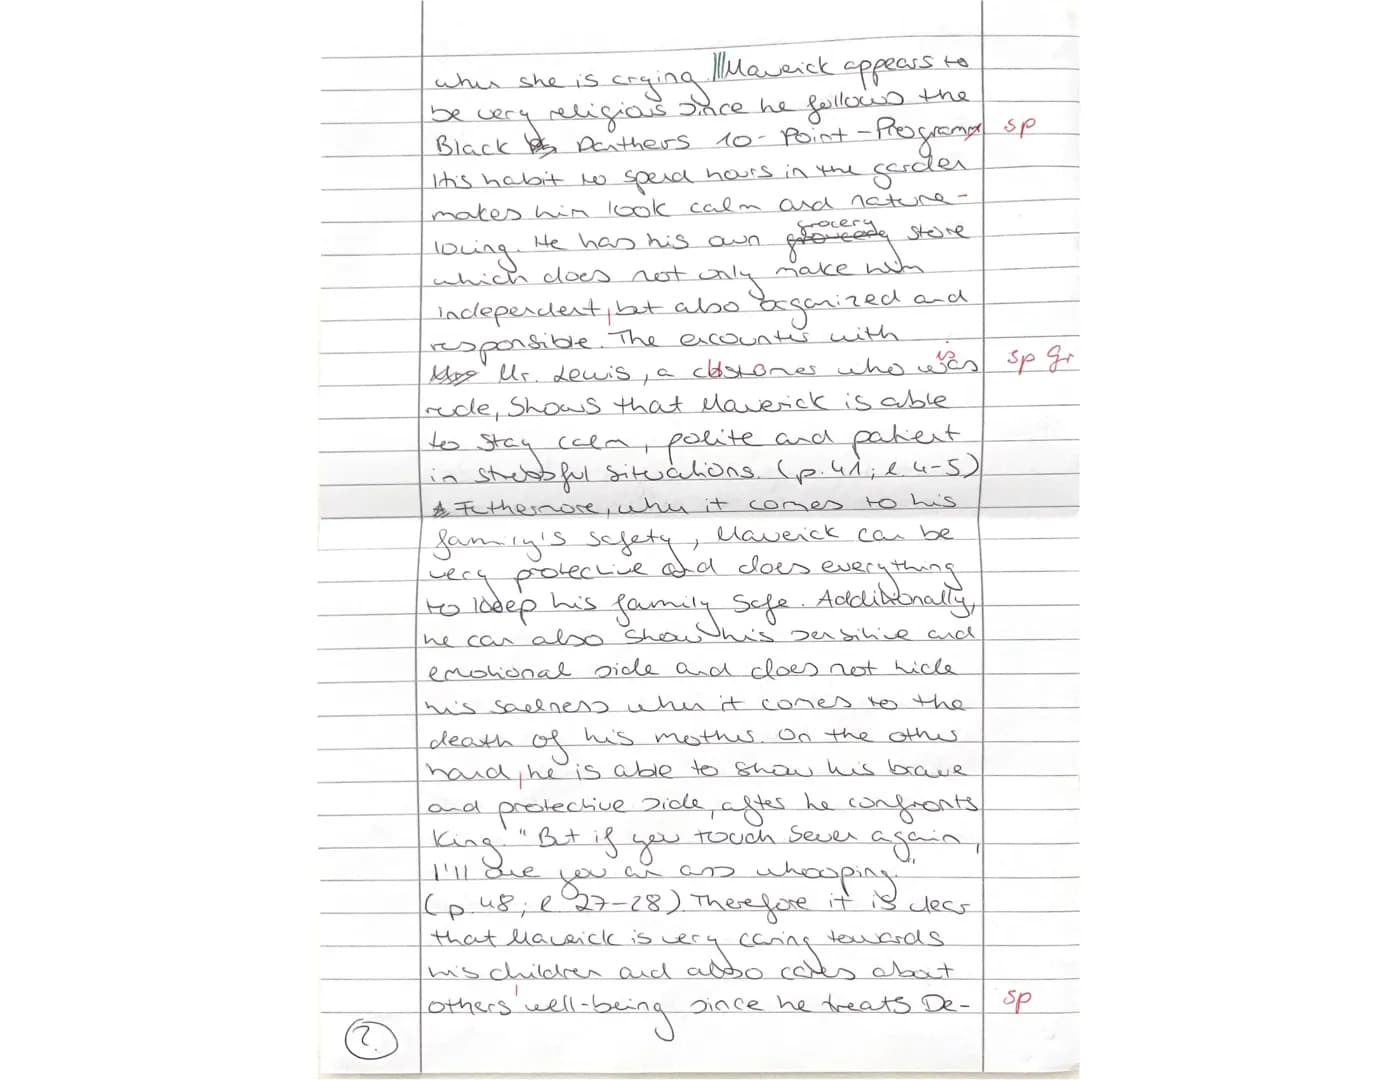 when she is crying. Maverick appears to
be very religious since he follows the
Black Panthers 10-Point-Program sp
His habit to spend hours in the garden
makes him look calm and nature-
loving. He has his own grocery store
which does not only make him
independent, but also organized and
responsible. The encounter with
Mr. Lewis, a customer who was is sp gr
rude, shows that Maverick is able
to stay calm, polite and patient
in stressful situations. (p. 41; l. 4-5)
Futhermore, when it comes to his
family's safety, Maverick can be
very protective and does everything
to keep his family safe. Additionally,
he can also show his sensitive and
emotional side and does not hide
his sadness when it comes to the
death of his mother. On the other
hand, he is able to show his brave
and protective side, after he confronts
King. "But if you touch Seven again,
I'll owe you an ass whooping."
(p. 48; l. 27-28) Therefore it is clear
that Maverick is very caring towards
his children and also cares about
others' well-being since he treats De- sp
2.